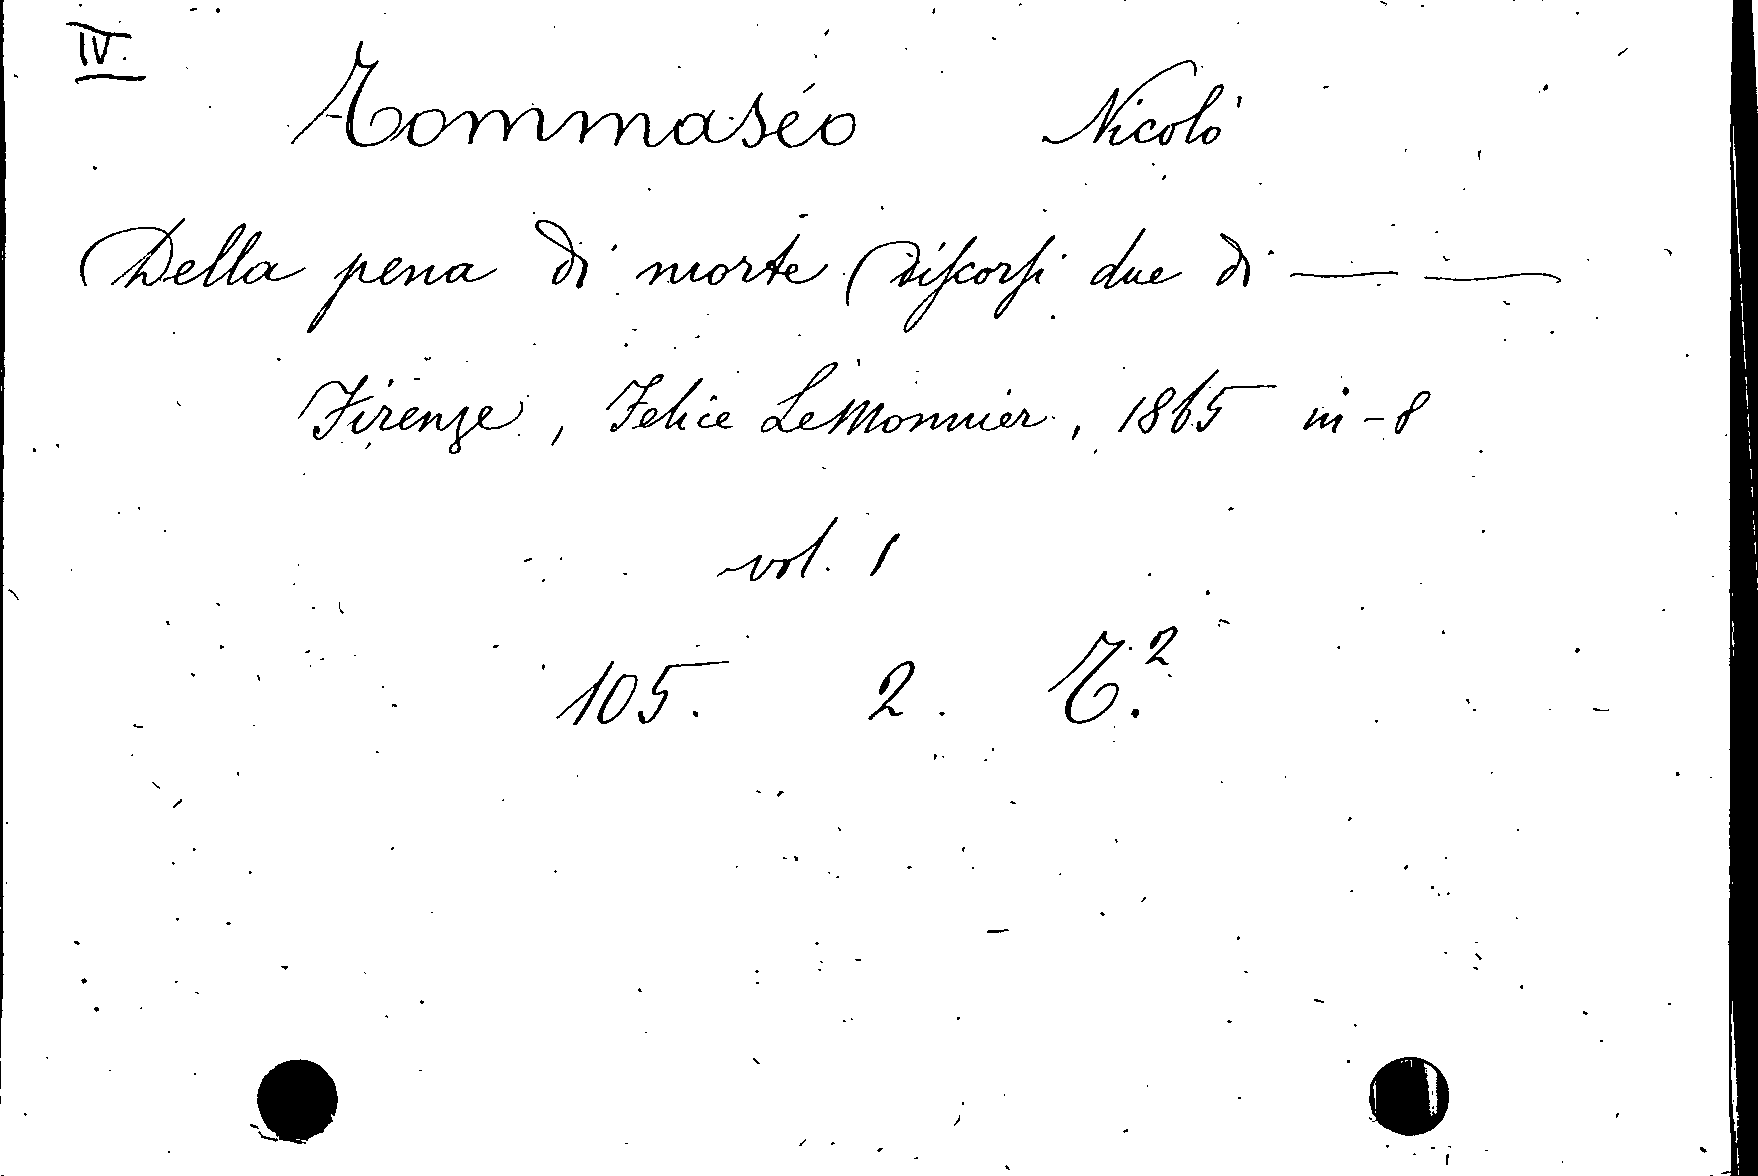 IV.
Tommaséo Nicolò
Della pena di morte Discorsi due di — —
Firenze, Felice LeMonnier, 1865 in-8
vol. 1
105. 2. T.²